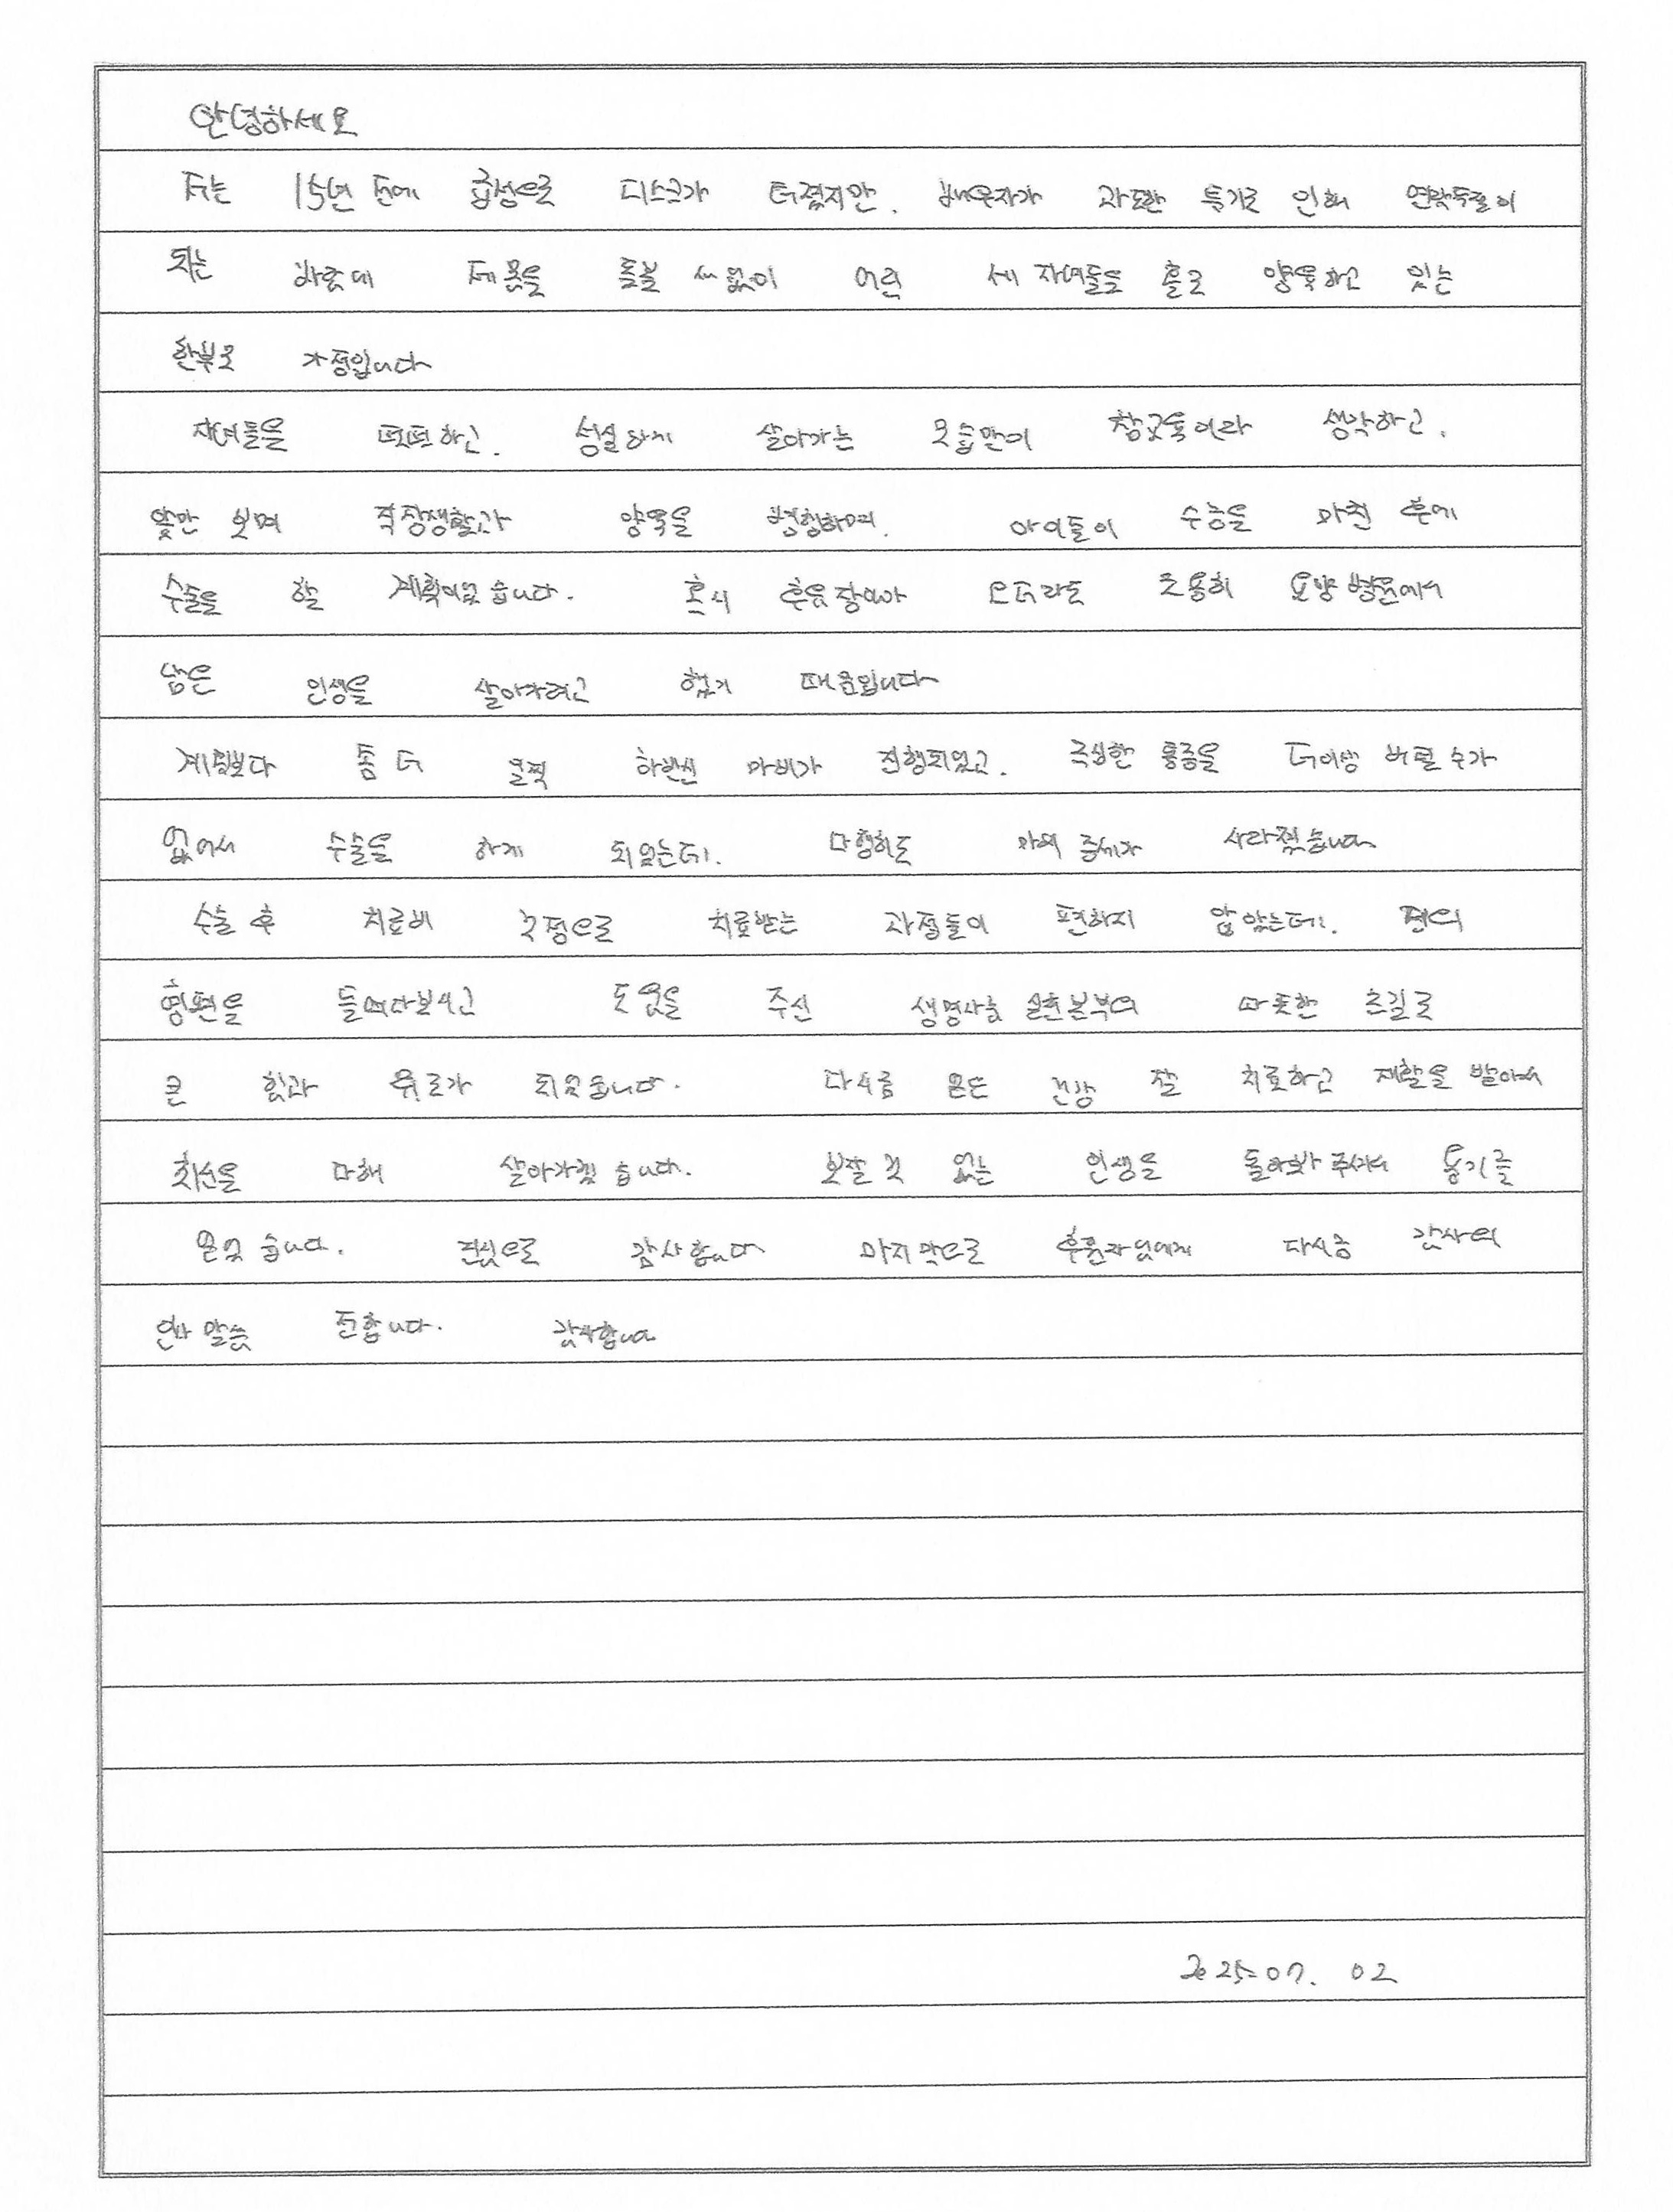 안녕하세요
저는 15년 전에 급성으로 디스크가 터졌지만, 배우자가 과도한 투기로 인해 연락두절이
되는 바람에 제 몸을 돌볼 새 없이 어린 세 자녀들을 홀로 양육하고 있는
한부모 가정입니다
자녀들을 떳떳하고, 성실하게 살아가는 모습만이 참교육이라 생각하고,
앞만 보며 직장생활과 양육을 병행하며, 아이들이 수능을 마친 후에
수술을 할 계획이었습니다. 혹시 후유장애가 오더라도 조용히 요양병원에서
남은 인생을 살아가려고 했기 때문입니다
계획보다 좀 더 일찍 하반신 마비가 진행되었고, 극심한 통증을 더이상 버틸 수가
없어서 수술을 하게 되었는데, 다행히도 마비 증세가 사라졌습니다
수술 후 치료비 걱정으로 치료받는 과정들이 편하지 않았는데, 저의
형편을 들여다보시고 도움을 주신 생명사랑 실천본부의 따뜻한 손길로
큰 힘과 위로가 되었습니다. 다시금 얻은 건강 잘 치료하고 재활을 받아서
최선을 다해 살아가겠습니다. 보잘 것 없는 인생을 돌아봐 주셔서 용기를
얻었습니다. 진심으로 감사합니다 마지막으로 후원자님에게 다시금 감사의
인사 말씀 전합니다. 감사합니다
2025.07. 02